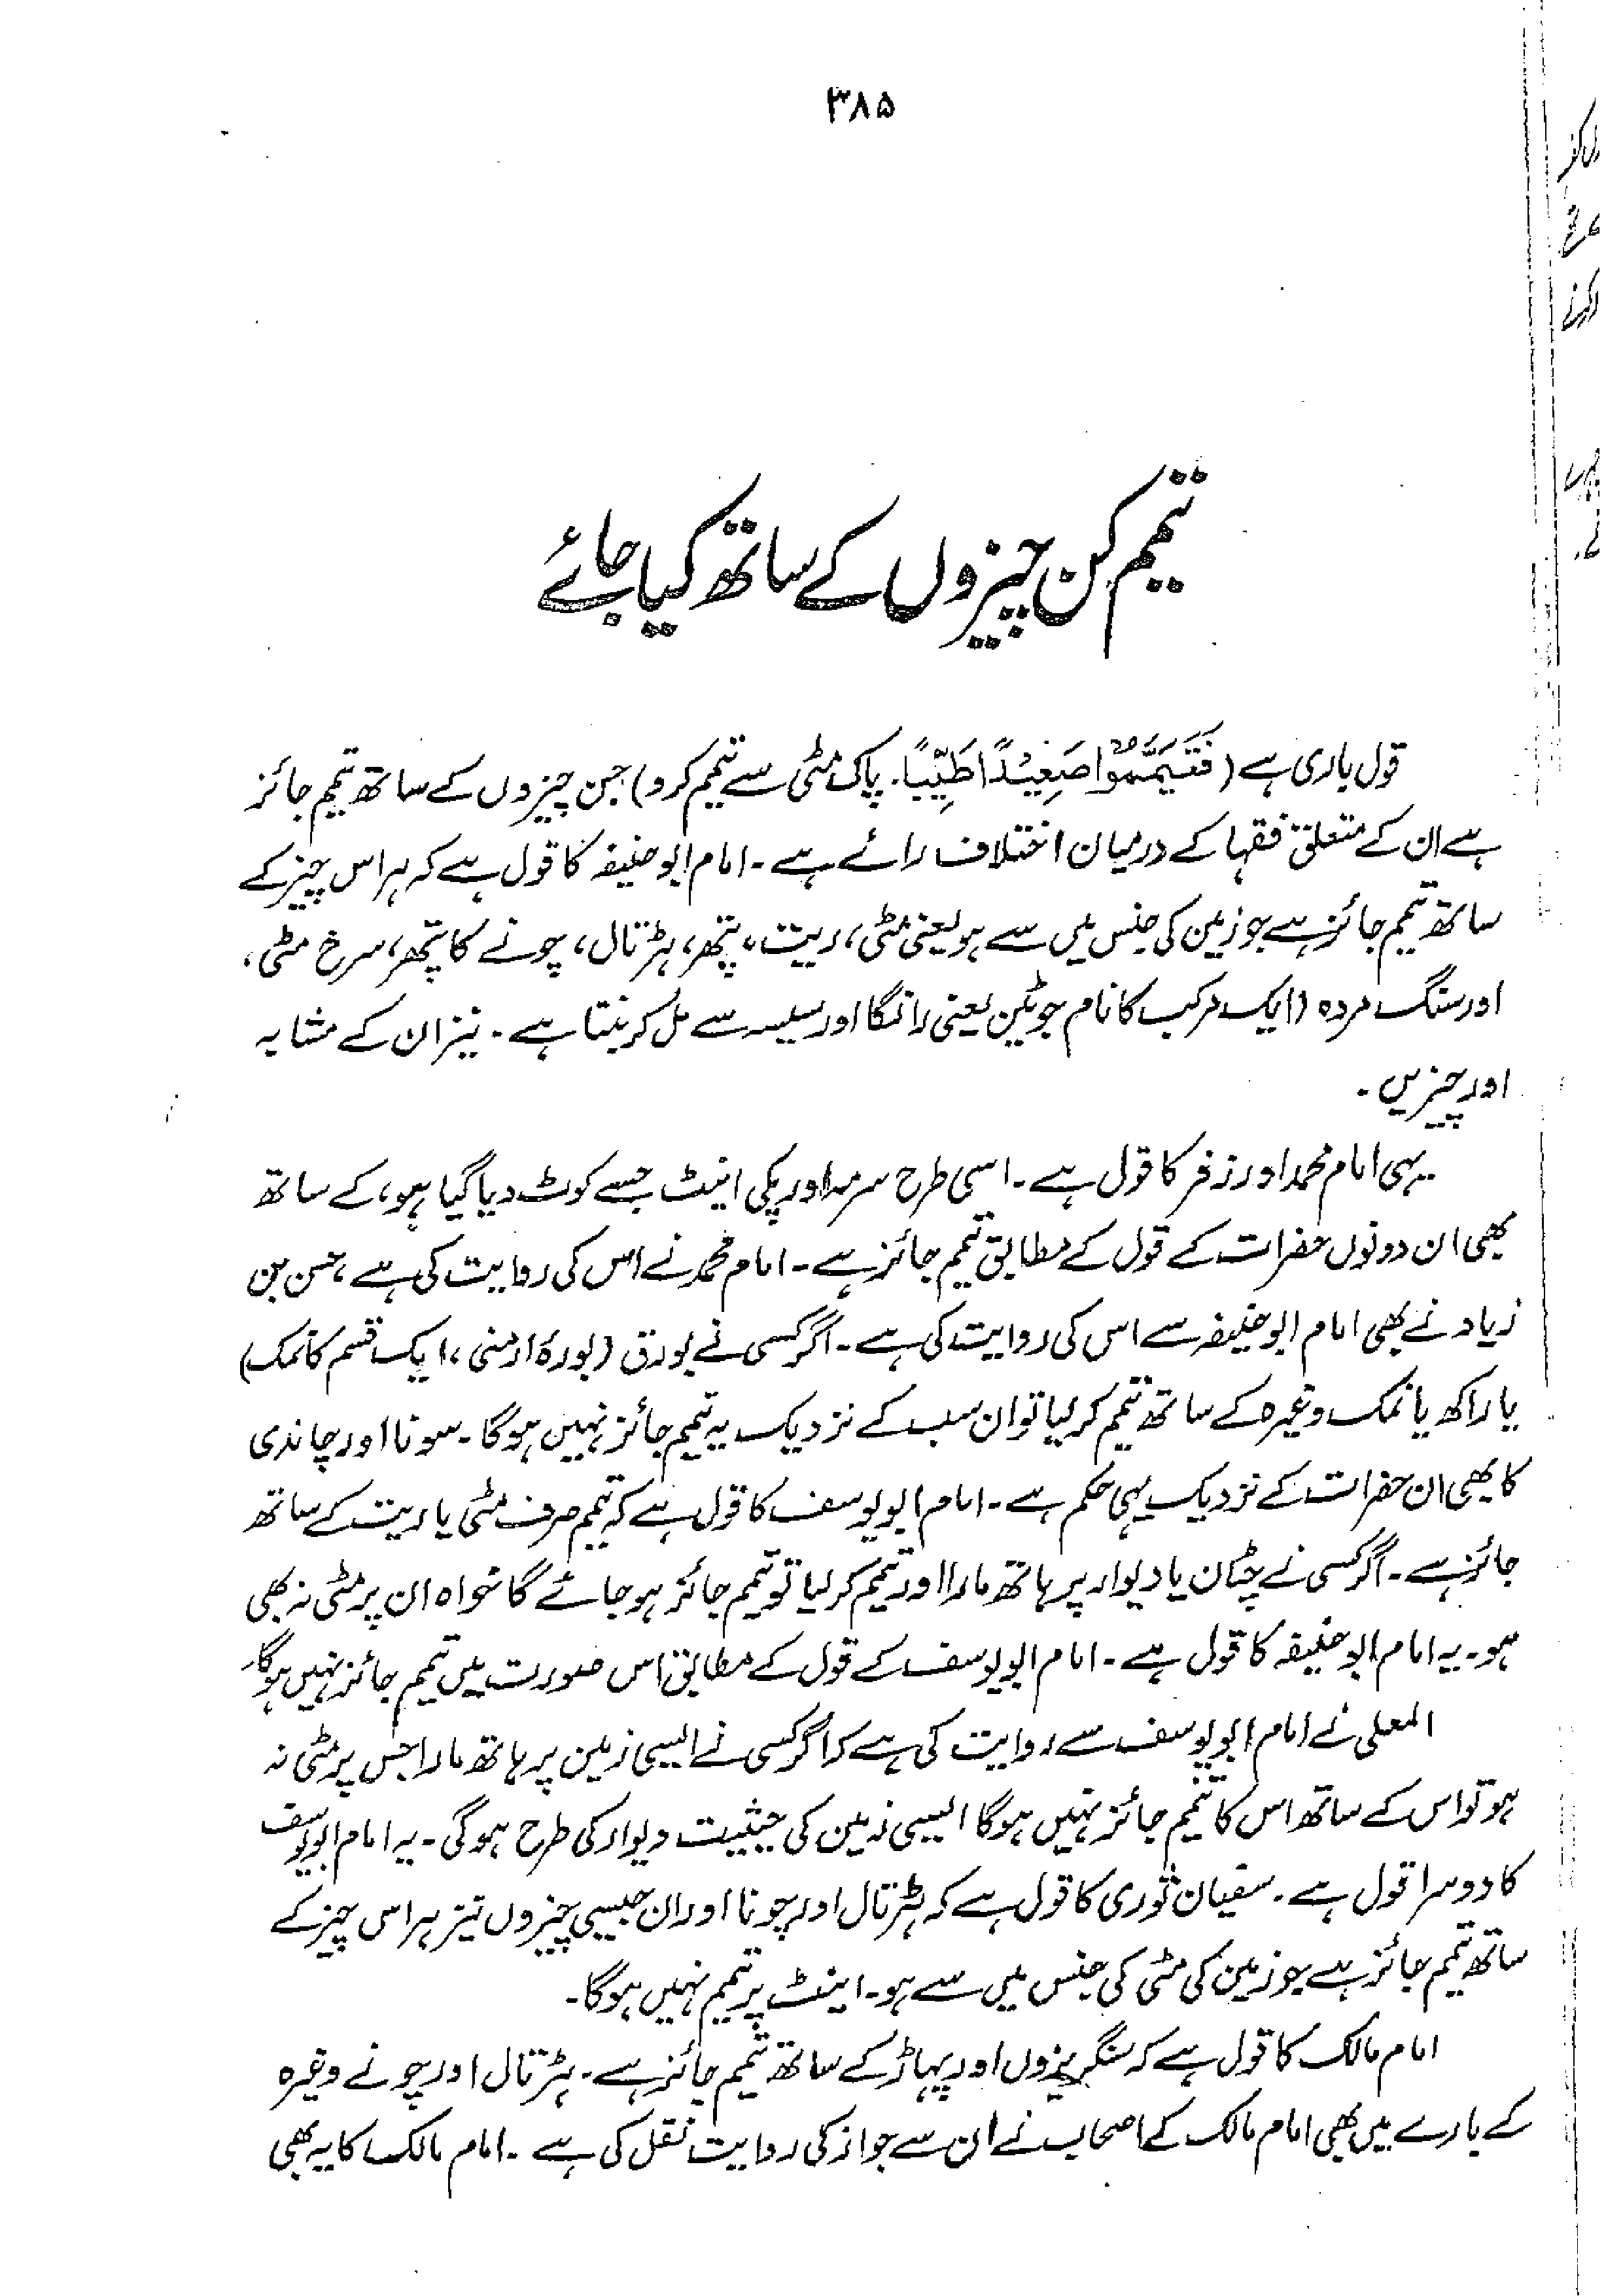 ۳۸۵
تیمم کن چیزوں کے ساتھ کیا جائے
قول باری ہے (فَتَيَمَّمُوْا صَعِيْدًا طَيِّبًا۔ پاک مٹی سے تیمم کرو) جن چیزوں کے ساتھ تیمم جائز
ہے ان کے متعلق فقہا کے درمیان اختلاف رائے ہے۔ امام ابو حنیفہ کا قول ہے کہ ہر اس چیز کے
ساتھ تیمم جائز ہے جو زمین کی جنس میں سے ہو یعنی مٹی، ریت، پتھر، ہڑتال، چونے کا پتھر، سرخ مٹی،
اور سنگ مردہ (ایک مرکب کا نام جو ٹین یعنی رانگا اور سیسہ سے مل کر بنتا ہے۔ نیز ان کے مشابہ
اور چیزیں۔
یہی امام محمد اور زفر کا قول ہے۔ اسی طرح سرمہ اور پکی اینٹ جسے کوٹ دیا گیا ہو، کے ساتھ
بھی ان دونوں حضرات کے قول کے مطابق تیمم جائز ہے۔ امام محمد نے اس کی روایت کی ہے، حسن بن
زیاد نے بھی امام ابو حنیفہ سے اس کی روایت کی ہے۔ اگر کسی نے بورق (بورۂ ارمنی، ایک قسم کا نمک)
یا راکھ یا نمک وغیرہ کے ساتھ تیمم کر لیا تو ان سب کے نزدیک یہ تیمم جائز نہیں ہوگا۔ سونا اور چاندی
کا بھی ان حضرات کے نزدیک یہی حکم ہے۔ امام ابو یوسف کا قول ہے کہ تیمم صرف مٹی یا ریت کے ساتھ
جائز ہے۔ اگر کسی نے چٹان یا دیوار پر ہاتھ مارا اور تیمم کر لیا تو تیمم جائز ہو جائے گا خواہ ان پر مٹی نہ بھی
ہو۔ یہ امام ابو حنیفہ کا قول ہے۔ امام ابو یوسف کے قول کے مطابق اس صورت میں تیمم جائز نہیں ہوگا۔
المعلی نے امام ابو یوسف سے روایت کی ہے کہ اگر کسی نے ایسی زمین پر ہاتھ مارا جس پر مٹی نہ
ہو تو اس کے ساتھ اس کا تیمم جائز نہیں ہوگا ایسی زمین کی حیثیت دیوار کی طرح ہوگی۔ یہ امام ابو یوسف
کا دوسرا قول ہے۔ سفیان ثوری کا قول ہے کہ ہڑتال اور چونا اور ان جیسی چیزوں نیز ہر اس چیز کے
ساتھ تیمم جائز ہے جو زمین کی مٹی کی جنس میں سے ہو۔ اینٹ پر تیمم نہیں ہوگا۔
امام مالک کا قول ہے کہ سنگریزوں اور پہاڑ کے ساتھ تیمم جائز ہے۔ ہڑتال اور چونے وغیرہ
کے بارے میں بھی امام مالک کے اصحاب نے ان سے جواز کی روایت نقل کی ہے۔ امام مالک کا یہ بھی